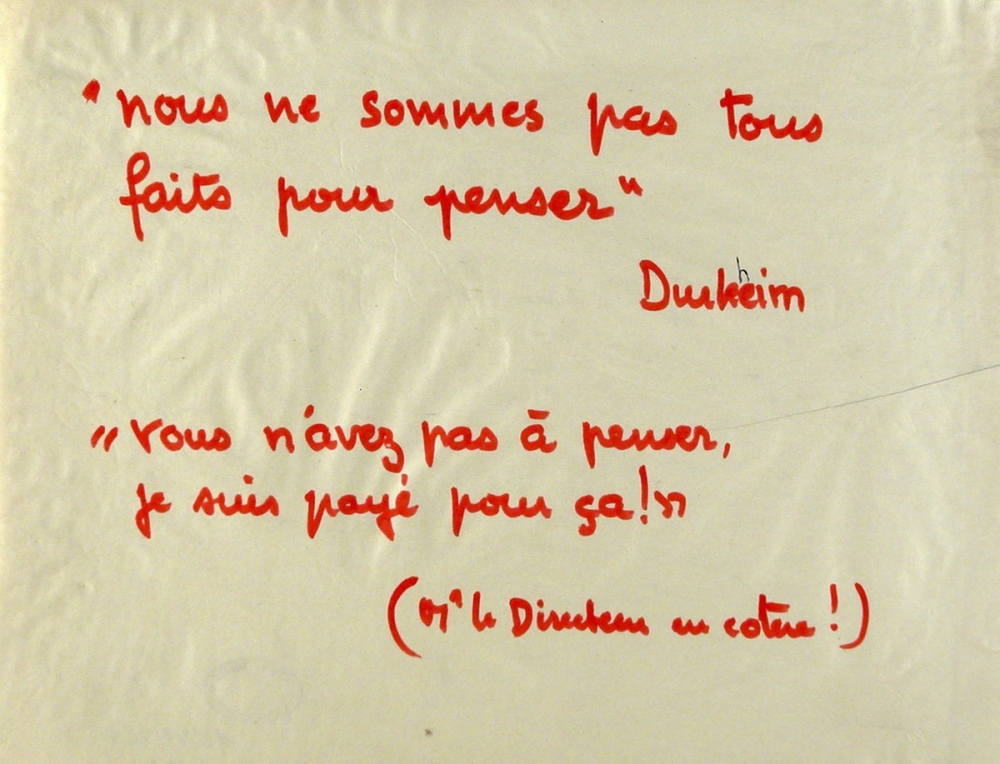 "nous ne sommes pas tous
faits pour penser"
Durkheim
"vous n'avez pas à penser,
je suis payé pour ça!"
(Mr le Directeur en colère!)